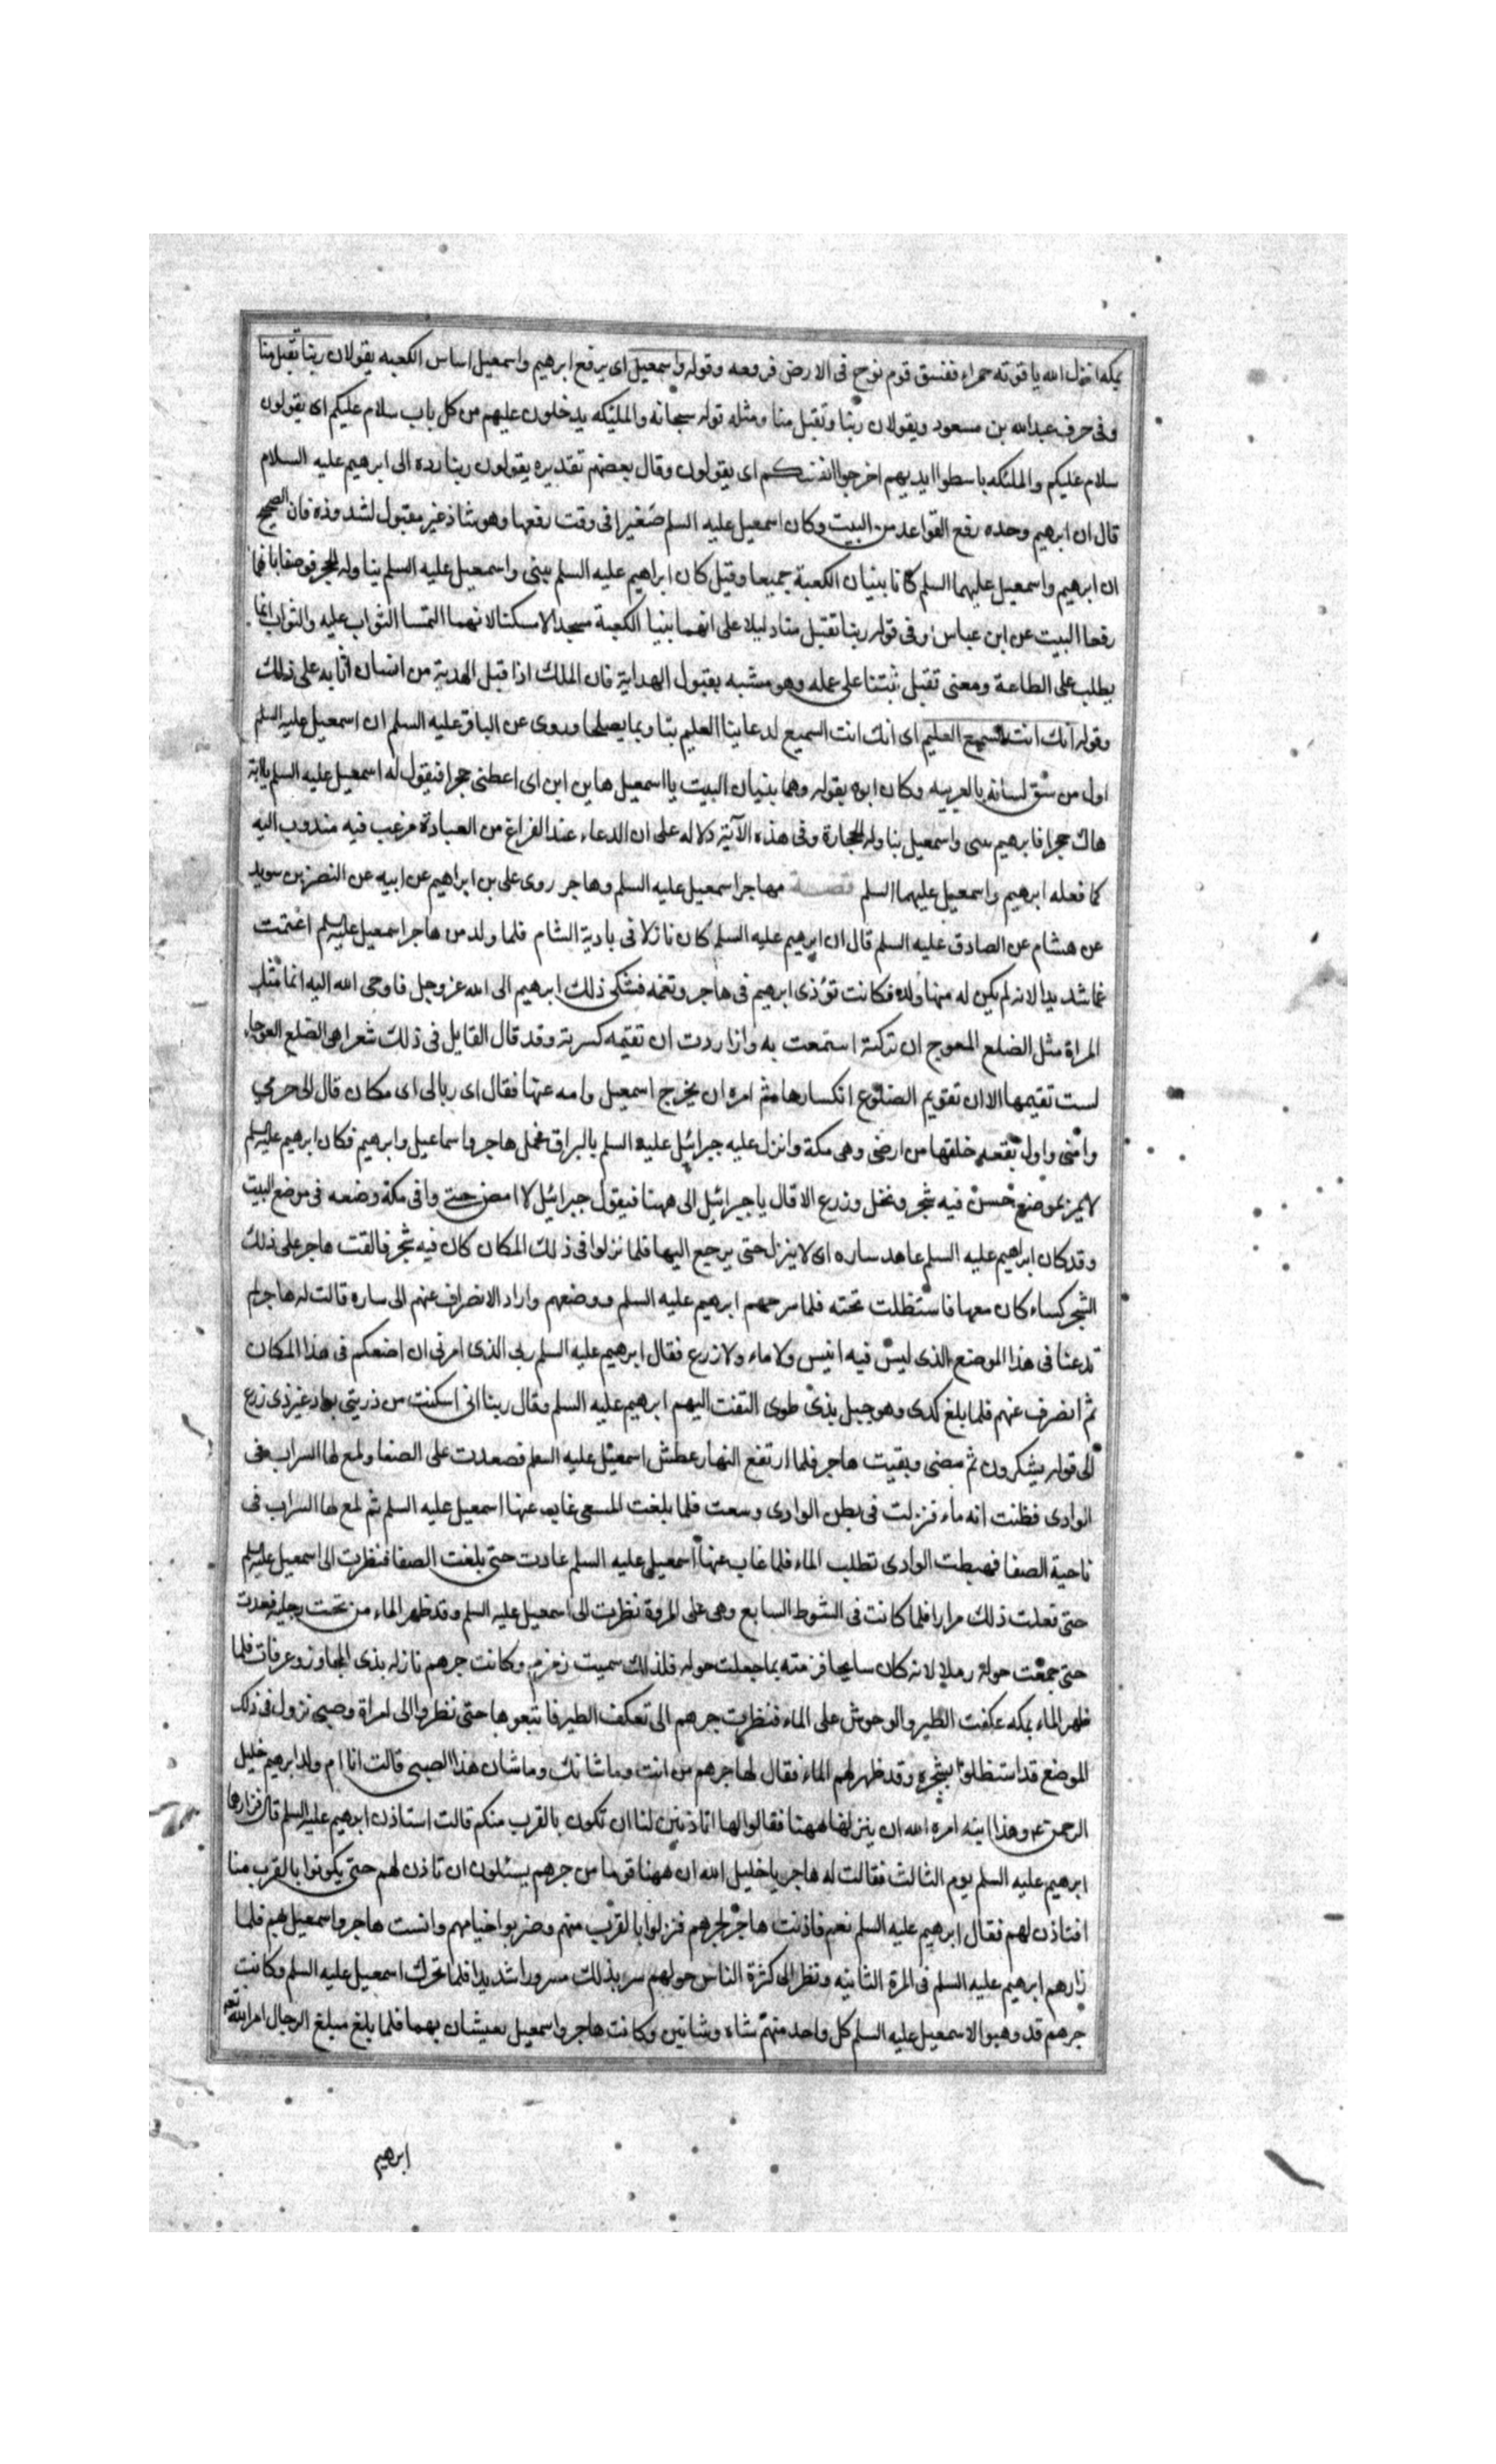 بمكه انزل الله ياقوته حمراء ففسق قوم نوح فى الارض فرفعه وقوله واسمعيل اى يرفع ابرهيم واسمعيل اساس الكعبه يقولان ربنا تقبل منا
وفى حرف عبدالله بن مسعود ويقولان ربنا وتقبل منا ومثله قوله سبحانه والملئكه يدخلون عليهم من كل باب سلام عليكم اى يقولون
سلام عليكم والملئكه باسطوا ايديهم اخرجوا انفسكم اى يقولون وقال بعضهم تقديره يقولون ربنا رده الى ابرهيم عليه السلام
قال ان ابرهيم وحده رفع القواعد من البيت وكان اسمعيل عليه السلم صغيرا فى وقت رفعها وهو شاذ غير مقبول لشذوذه فان الصحيح
ان ابرهيم واسمعيل عليهما السلم كانا يبنيان الكعبة جميعا وقيل كان ابراهيم عليه السلم يبنى واسمعيل عليه السلم يناوله الحجر فوصفا بانهما
رفعا البيت عن ابن عباس وفى قوله ربنا تقبل منا دليلا على انهما بنيا الكعبة مسجدا لا مسكنا لانهما التمسا الثواب عليه والثواب انما
يطلب على الطاعة ومعنى تقبل ثبتنا على عمله وهو مشبه بقبول الهداية فان الملك اذا قبل الهدية من انسان اثابه على ذلك
وقوله انك انت السميع العليم اى انك انت السميع لدعاينا العليم بنا وبما يصلحنا وروى عن الباقر عليه السلم ان اسمعيل عليه السلم
اول من شق لسانه بالعربيه وكان ابوه يقوله وهما يبنيان البيت يا اسمعيل هاين ابن اى اعطنى حجرا فيقول له اسمعيل عليه السلم يا ابة
هاك حجرا فابرهيم يبنى واسمعيل يناوله الحجارة وفى هذه الآية دلاله على ان الدعاء عند الفراغ من العبادة مرغب فيه مندوب اليه
كما فعله ابرهيم واسمعيل عليهما السلم قصة مهاجر اسمعيل عليه السلم وهاجر روى على بن ابراهيم عن ابيه عن النضر بن سويد
عن هشام عن الصادق عليه السلم قال ان ابرهيم عليه السلم كان نازلا فى بادية الشام فلما ولد من هاجر اسمعيل عليه السلم اغتمت
غما شديدا لانه لم يكن له منها ولد فكانت تؤذى ابرهيم فى هاجر وتغمه فشكى ذلك ابرهيم الى الله عز وجل فاوحى الله اليه انما مثل
المراة مثل الضلع المعوج ان تركته استمعت به واذا ردت ان تقيمه كسرته وقد قال القايل فى ذلك شعرا هى الضلع العوجاء
لست تقيمها الا ان تقويم الضلوع انكسارها ثم امره ان يخرج اسمعيل وامه عنها فقال اى رب الى اى مكان قال الى حرمي
وامنى واول بقعه خلقتها من ارضى وهى مكة وانزل عليه جبرائيل عليه السلم بالبراق فحمل هاجر واسماعيل وابرهيم فكان ابرهيم عليه السلم
لا يمر بموضع حسن فيه شجر ونخل وزرع الا قال يا جبرائيل الى ههنا فيقول جبرائيل لا امض حتى وافى مكة وضعه فى موضع البيت
وقد كان ابراهيم عليه السلم عاهد ساره اى لا ينزل حتى يرجع اليها فلما نزلوا فى ذلك المكان كان فيه شجر فالقت هاجر على ذلك
الشجر كساء كان معها فاستظلت تحته فلما سرحهم ابرهيم عليه السلم ووضعهم واراد الانصراف عنهم الى ساره قالت له هاجر لم
تدعنا فى هذا الموضع الذى ليس فيه انيس ولا ماء ولا زرع فقال ابرهيم عليه السلم ربى الذى امرنى ان اضعكم فى هذا المكان
ثم انصرف عنهم فلما بلغ كدى وهو جبل بذى طوى التفت اليهم ابرهيم عليه السلم وقال ربنا انى اسكنت من ذريتى بواد غير ذى زرع
الى قوله يشكرون ثم مضى وبقيت هاجر فلما ارتفع النهار عطش اسمعيل عليه السلم فصعدت على الصفا ولمع لها السراب فى
الوادى فظنت انه ماء فنزلت فى بطن الوادى وسعت فلما بلغت المسعى غاب عنها اسمعيل عليه السلم ثم لمع لها السراب فى
ناحية الصفا فهبطت الوادى تطلب الماء فلما غاب عنها اسمعيل عليه السلم عادت حتى بلغت الصفا فنظرت الى اسمعيل عليه السلم
حتى فعلت ذلك مرارا فلما كانت فى الشوط السابع وهى على المروة نظرت الى اسمعيل عليه السلم وقد ظهر الماء من تحت رجليه فعدت
حتى جمعت حوله رملا لانه كان سايحا فزمته بما جعلت حوله فلذلك سميت زمزم وكانت جرهم نازله بذى المجاز وعرفات فلما
ظهر الماء بمكه عكفت الطير والوحوش على الماء فنظرت جرهم الى تعكف الطير فاتبعوها حتى نظروا الى امراة وصبى نزول فى ذلك
الموضع قد استظلوا بشجره وقد ظهر لهم الماء فقال لها جرهم من انت وما شانك وما شان هذا الصبى قالت انا ام ولد ابرهيم خليل
الرحمن وهذا ابنه امره الله ان ينزلنا ههنا فقالوا لها اتاذنين لنا ان نكون بالقرب منكم قالت استاذن ابرهيم عليه السلم قال فزارها
ابرهيم عليه السلم يوم الثالث فقالت له هاجر يا خليل الله ان ههنا قوما من جرهم يسئلون ان تاذن لهم حتى يكونوا بالقرب منا
افتاذن لهم فقال ابرهيم عليه السلم نعم فاذنت هاجر لجرهم فنزلوا بالقرب منهم وضربوا خيامهم وانست هاجر واسمعيل بهم فلما
زارهم ابرهيم عليه السلم فى المرة الثانيه ونظر الى كثرة الناس حولهم سر بذلك سرورا شديدا فلما تحرك اسمعيل عليه السلم وكانت
جرهم قد وهبوا لاسمعيل عليه السلم كل واحد منهم شاه وشاتين وكانت هاجر واسمعيل يعيشان بهما فلما بلغ مبلغ الرجال امر الله تعه
ابرهيم